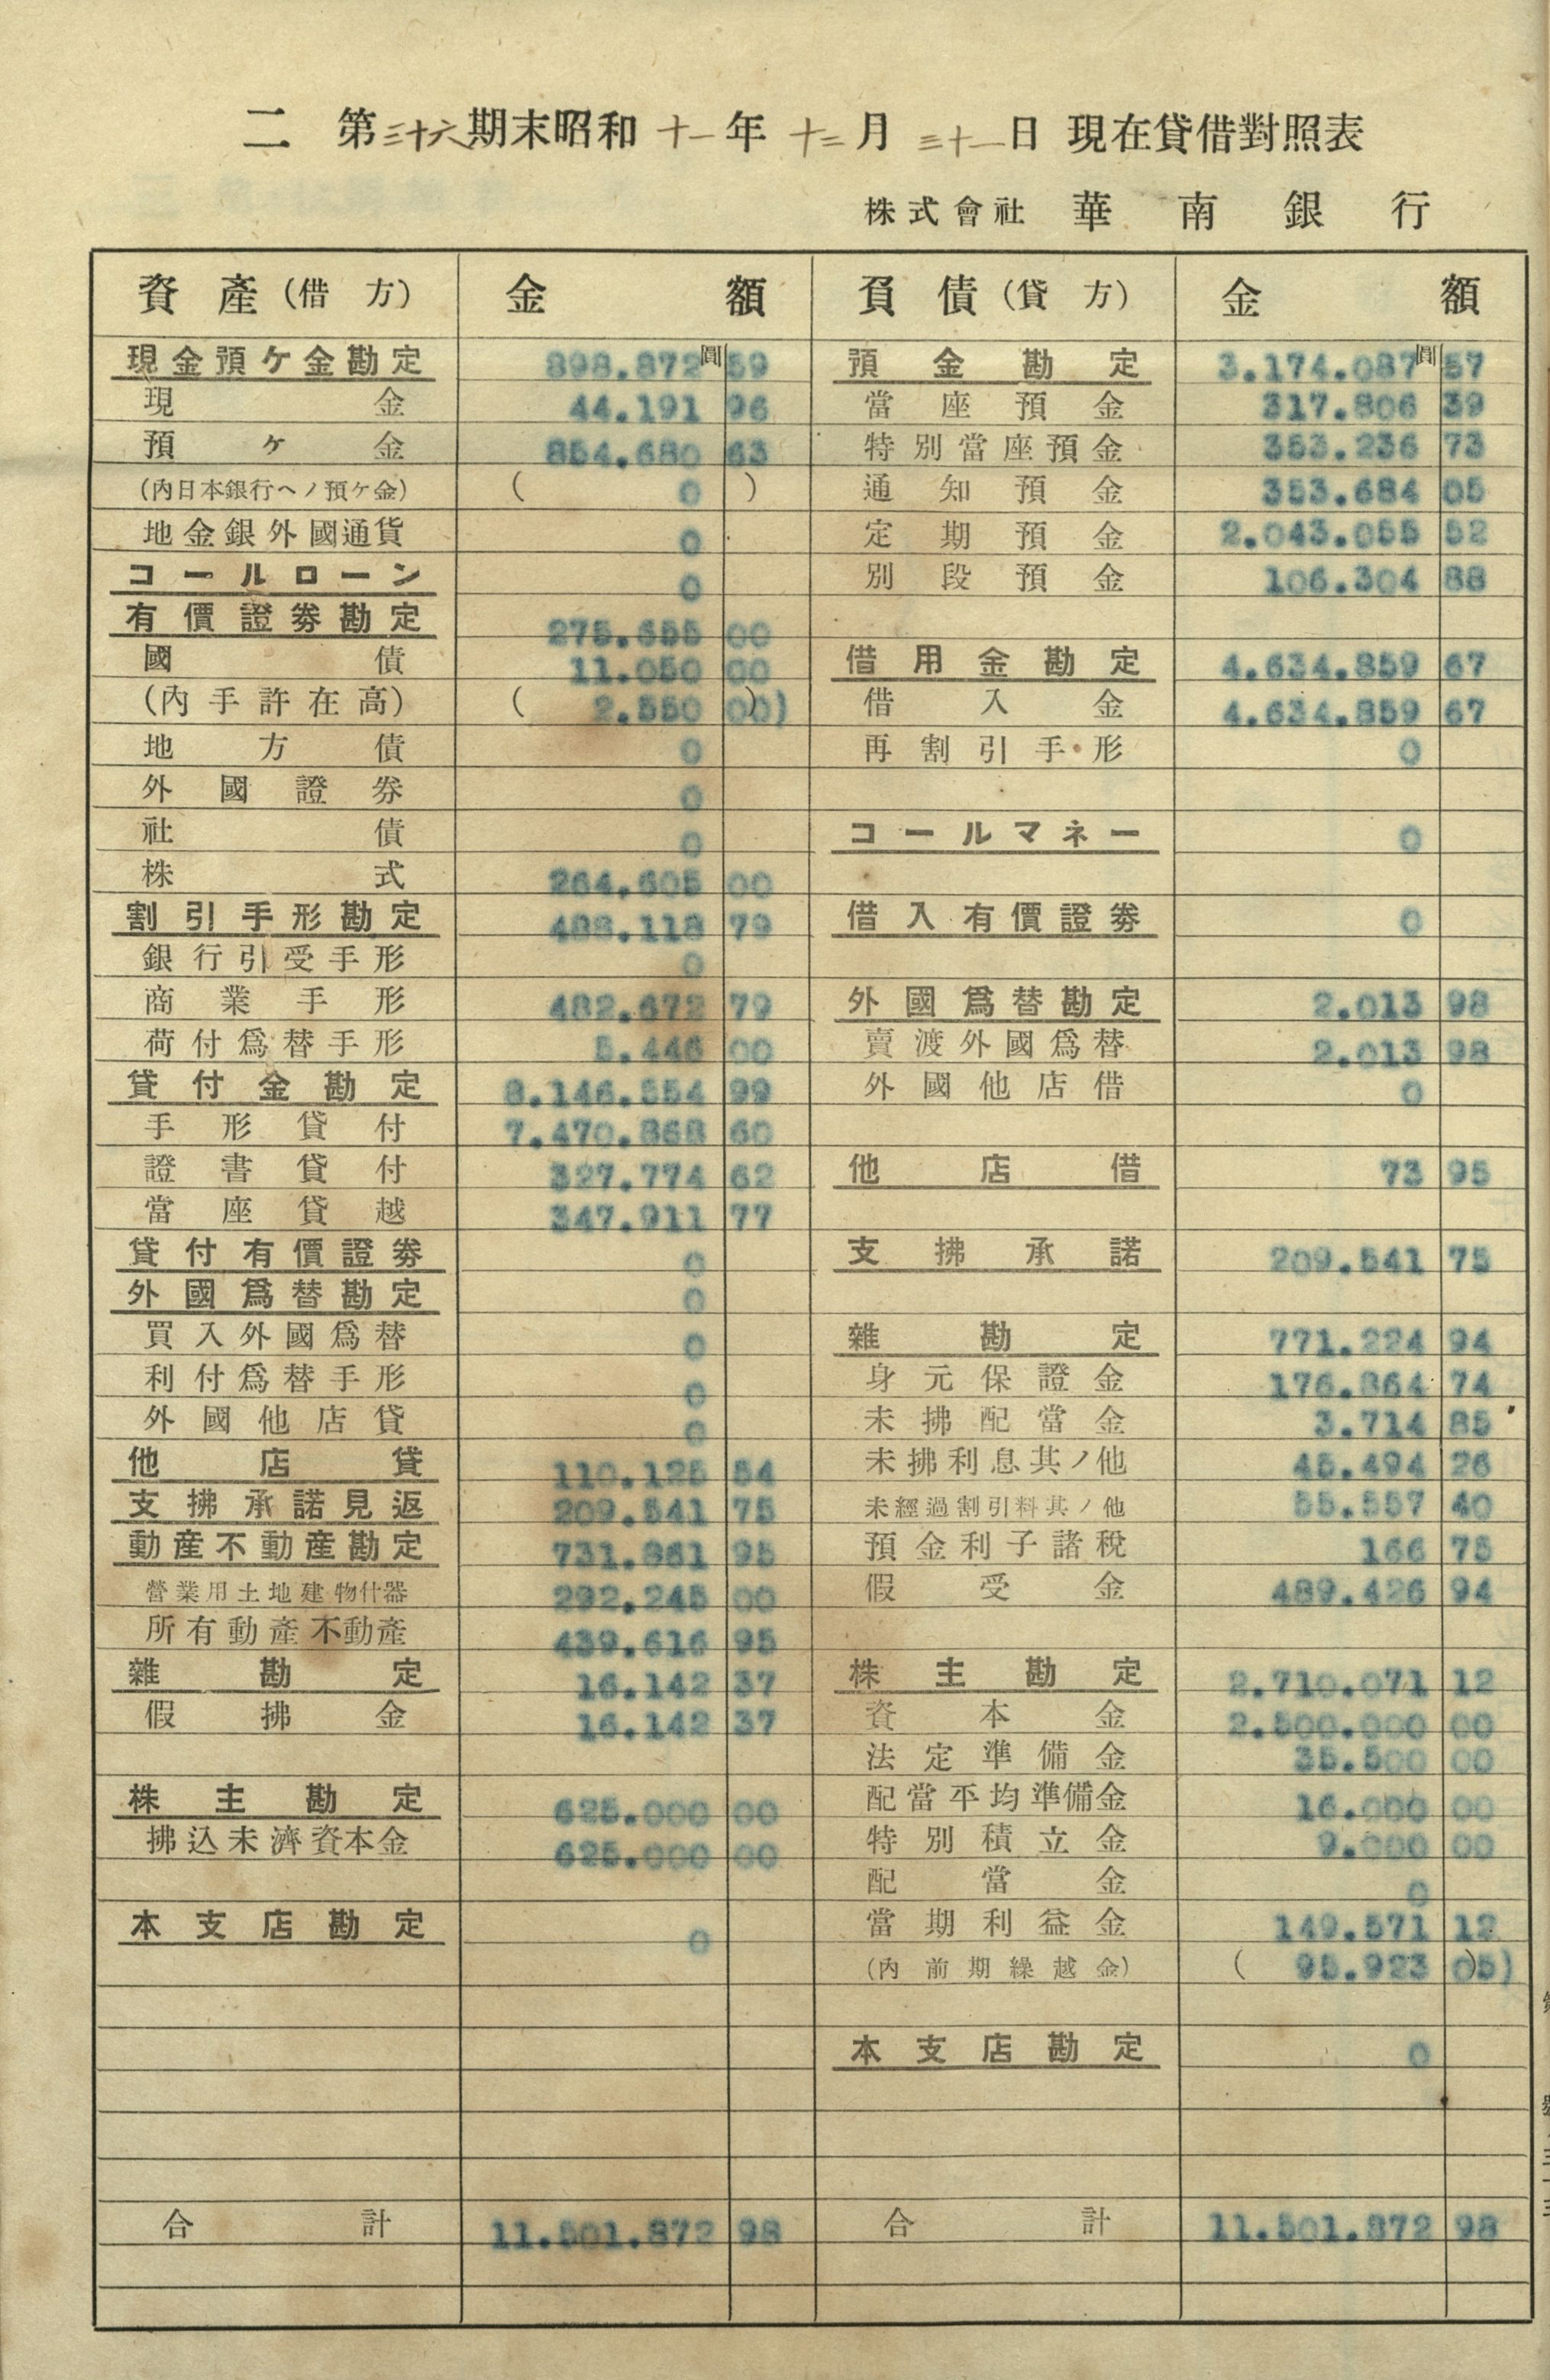 二 第三十六期末昭和十一年十二月三十一日現在貸借對照表
株式會社 華南銀行
資產(借方) 金額
現金預ケ金勘定 898.872圓59
現金 44.191 96
預ケ金 854.680 63
(內日本銀行ヘノ預ケ金) ( 0 )
地金銀外國通貨 0
コールローン 0
有價證券勘定 275.655 00
國債 11.050 00
(內手許在高) ( 2.550 00)
地方債 0
外國證券 0
社債 0
株式 264.605 00
割引手形勘定 488.118 79
銀行引受手形 0
商業手形 482.672 79
荷付爲替手形 5.446 00
貸付金勘定 8.146.554 99
手形貸付 7.470.868 60
證書貸付 327.774 62
當座貸越 347.911 77
貸付有價證券 0
外國爲替勘定 0
買入外國爲替 0
利付爲替手形 0
外國他店貸 0
他店貸 110.125 54
支拂承諾見返 209.541 75
動産不動産勘定 731.861 95
營業用土地建物什器 292.245 00
所有動產不動產 439.616 95
雜勘定 16.142 37
假拂金 16.142 37
株主勘定 625.000 00
拂込未濟資本金 625.000 00
本支店勘定 0
合計 11.501.872 98
負債(貸方) 金額
預金勘定 3.174.087圓57
當座預金 317.806 39
特別當座預金 353.236 73
通知預金 353.684 05
定期預金 2.043.055 52
別段預金 106.304 88
借用金勘定 4.634.859 67
借入金 4.634.859 67
再割引手形 0
コールマネー 0
借入有價證券 0
外國爲替勘定 2.013 98
賣渡外國爲替 2.013 98
外國他店借 0
他店借 73 95
支拂承諾 209.541 75
雜勘定 771.224 94
身元保證金 176.864 74
未拂配當金 3.714 85
未拂利息其ノ他 45.494 26
未經過割引料其ノ他 55.557 40
預金利子諸稅 166 75
假受金 489.426 94
株主勘定 2.710.071 12
資本金 2.500.000 00
法定準備金 35.500 00
配當平均準備金 16.000 00
特別積立金 9.000 00
配當金 0
當期利益金 149.571 12
(內前期繰越金) ( 95.923 05)
本支店勘定 0
合計 11.501.872 98